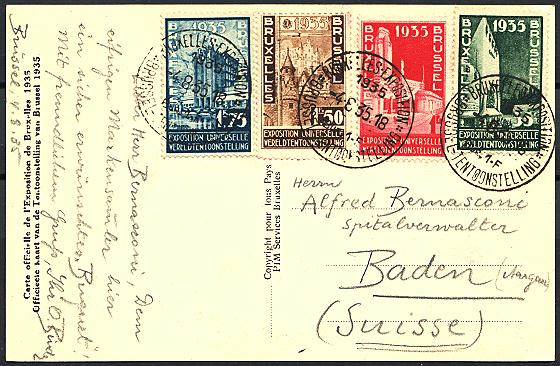 Carte officielle de l'Exposition de Bruxelles 1935
Officieele kaart van de Tentoonstelling van Brussel 1935
Brüssel 4.8.35
Lieber Herr Bernasconi, Dem
eifrigen Markensammler hier
ein sicher erwünschtes
Mit freundlichem Gruss Ihr O.
Copyright pour tous Pays
PIM Services Bruxelles
1935
BRUXELLES
BRUSSEL
1,75
EXPOSITION UNIVERSELLE
WERELDTENTOONSTELLING
1935
BRUXELLES
BRUSSEL
1,50
EXPOSITION UNIVERSELLE
WERELDTENTOONSTELLING
1935
BRUXELLES
BRUSSEL
EXPOSITION UNIVERSELLE
WERELDTENTOONSTELLING
1935
BRUXELLES
BRUSSEL
EXPOSITION UNIVERSELLE
WERELDTENTOONSTELLING
BRUXELLES-EXPOSITION
1935
Herrn
Alfred Bernasconi
Spitalverwalter
Baden (Aargau)
(Suisse)